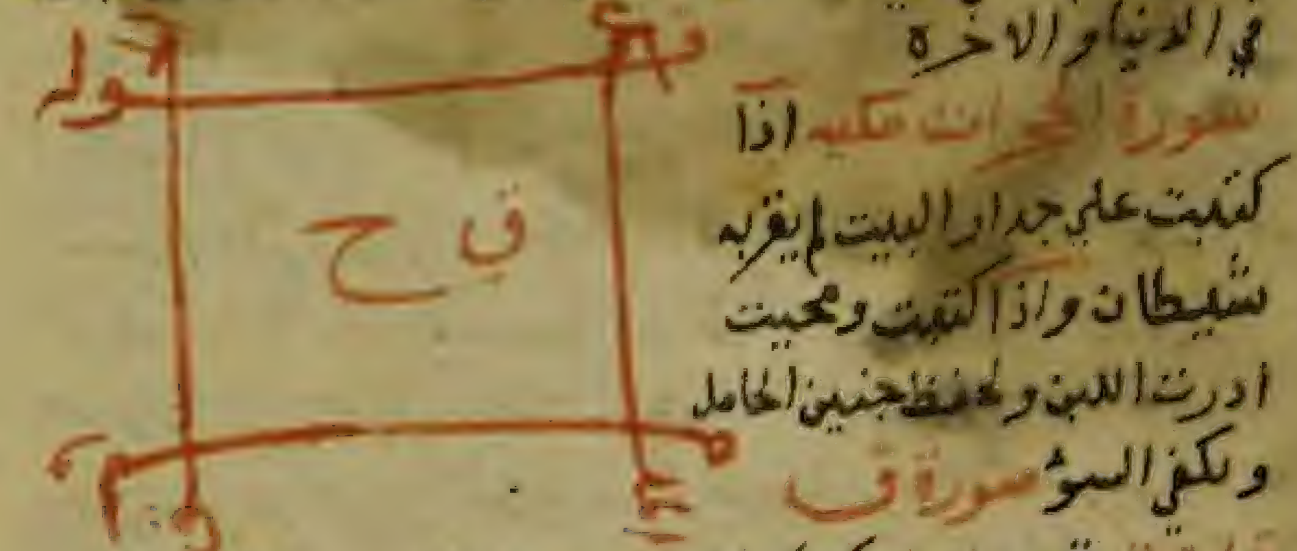 في الدنيا والاخرة
سورة الحجرات مكيه اذا
كتبت على جدار البيت لم يقربه
شيطان واذا كتبت ومحيت
ادرت اللبن وتحفظ جنين الحامل
وتكفي السوء سورة ق
ق ح